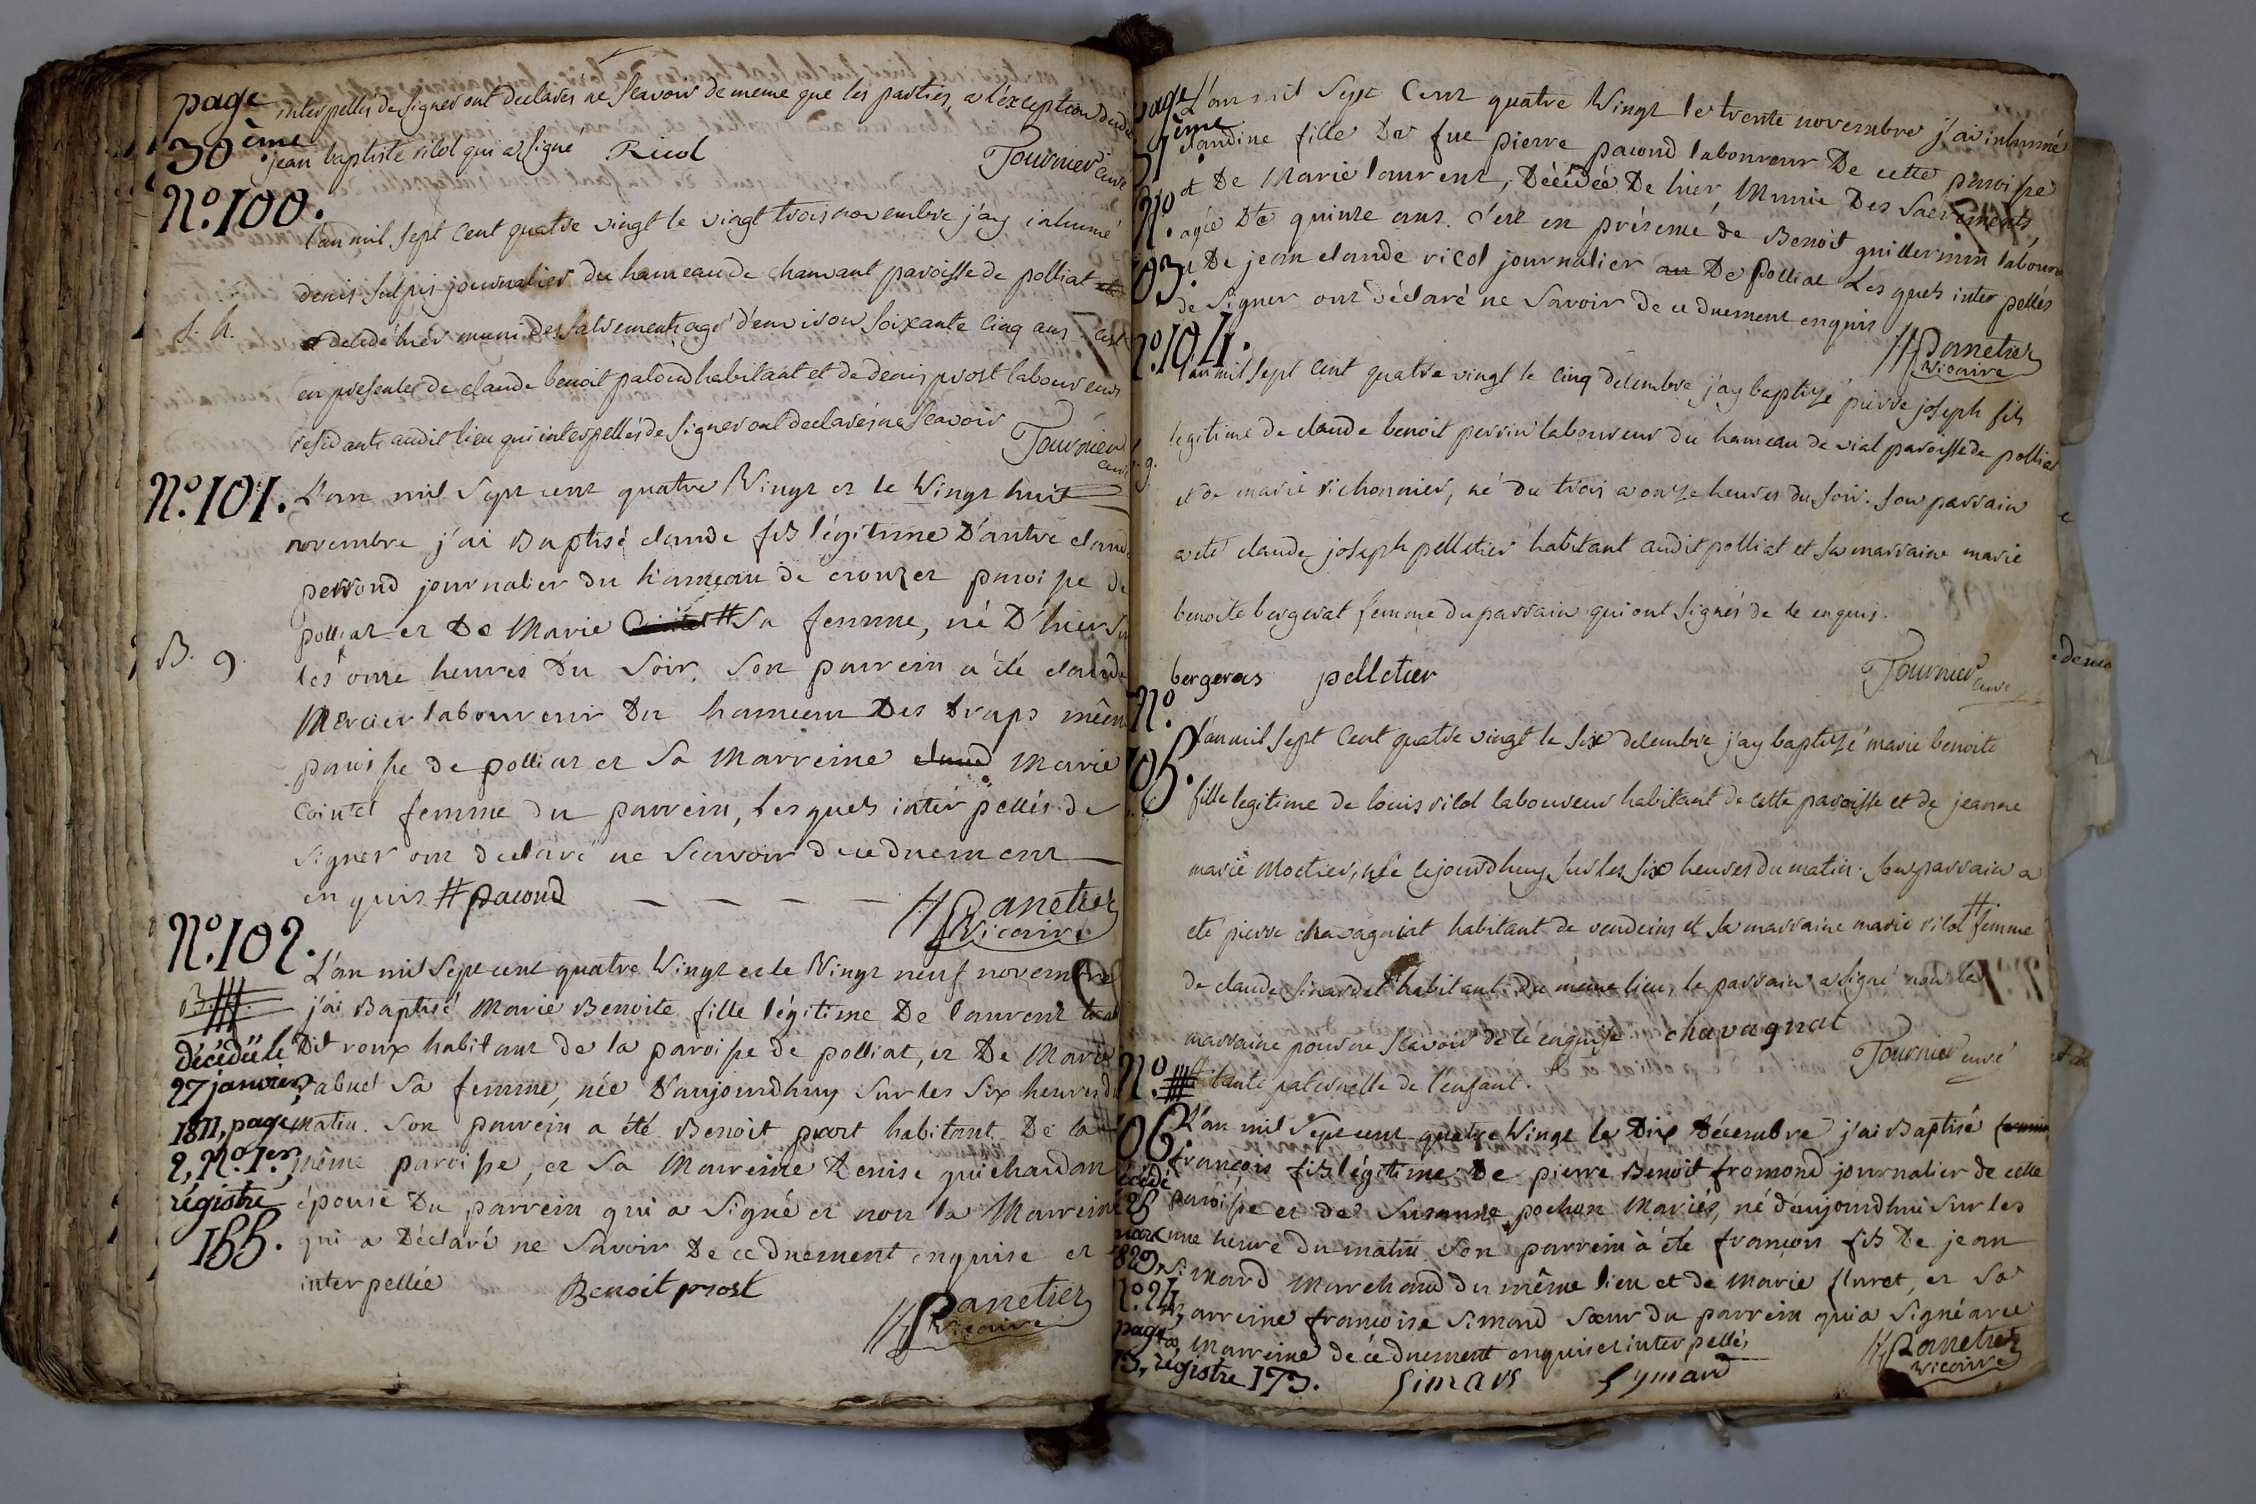 page
30ème
interpellés de signer ont declarés ne sçavoir de meme que les parties, a l'exception dudit
jean baptiste ricol qui a signé Ricol Tournier curé
N°.100.
l'an mil sept cent quatre vingt le vingt trois novembre j'ay inhumé
denis sulpis journalier du hameau de chanvant paroisse de polliat
S. h.
decedé hier muni des sacrements agé d'environ soixante cinq ans c'est
en presences de claude benoit pacoud habitant et de denis prost laboureurs
residants audit lieu qui interpellés de signer ont declarés ne sçavoir
Tournier curé
N°.101.
L'an mil sept cent quatre Vingt et le Vingt huit
novembre j'ai Baptisé claude fils légitime D'autre claude
perroud journalier du hameau de crouzet paroisse de
polliat et De Marie Cointet # Sa femme, né D'hier sur
B. 9.
les onze heures Du Soir. Son parrein a été claude
Mercier laboureur Du hameau Des Draps même
paroisse de polliat et Sa Marreine claud Marie
Cointet femme du parrein, Lesquels interpellés de
signer ont déclaré ne Scavoir de ce duement
enquis # pacoud
H Panetier Vicaire
N°.102.
B.
L'an mil sept cent quatre Vingt et le Vingt neuf novembre
j'ai Baptisé Marie Benoite fille légitime De laurent
décédée le
27 janvier
1811, page
2, N°.1er,
régistre
155.
Dit roux habitant de la paroisse de polliat, et De Marie
sa femme, née D'aujourdhuy Sur les Six heures du
matin. Son parrein a été Benoit prost habitant De la
même paroisse, et Sa Marreine Denise guichardan
épouse Du parrein qui a Signé et non la Marreine
qui a Déclaré ne Savoir De ce Duement enquise et
interpellée Benoit prost
H Panetier Vicaire
page
31ème
N°.
103.
L'an mil Sept Cent quatre Vingt le trente novembre j'ai inhumé
claudine fille De fue pierre pacoud laboureur De cette paroisse
et De Marie laurent, Décédée De hier, Munie Des Sacrements
agée De quinze ans. C'est en présence de Benoit guillermin laboureur
et De jean claude ricol journalier au De Polliat Lesquels interpellés
de Signer ont déclaré ne Savoir de ce duement enquis
H Panetier Vicaire
N°.104.
l'an mil sept cent quatre vingt le cinq decembre j'ay baptizé pierre joseph fils
legitime de claude benoit perrin laboureur du hameau de vial paroisse de polliat
g.
et de marie richonnier, né du trois a onze heures du soir. son parrain
a eté claude joseph pelletier habitant audit polliat et sa marraine marie
benoite bergerat femme du parrain qui ont signés de ce enquis.
bergeras pelletier Tournier curé
N°.
105.
l'an mil sept cent quatre vingt le six decembre j'ay baptizé marie benoite
fille legitime de louis ricol laboureur habitant de cette paroisse et de jeanne
marie Moctier, née cejourdhuy sur les six heures du matin. son parrain a
eté pierre chavagniat habitant de vendeins et sa marraine marie ricol # femme
de claude sinardet habitant du meme lieu, le parrain a signé non la
marraine pour ne sçavoir de ce enquise chavagnat
Tournier curé
# tante paternelle de l'enfant.
N°.
106.
L'an mil Sept cent quatre Vingt le Dix Décembre j'ai Baptisé
françois fils légitime De pierre Benoit fromond journalier de cette
décédé
28
paroisse et de Susanne pochon Mariés, né d'aujourdhui sur les
une heure du matin Son parrein a été françois fils De jean
1829,
N°.24,
page
13, régistre 173.
Simard Marchand du même lieu et de Marie fluret, et Sa
Marreine francoise Simard Sœur du parrein qui a Signé avec
la Marreine de ce duement enquis et interpellés
Simard Symard
H Panetier Vicaire